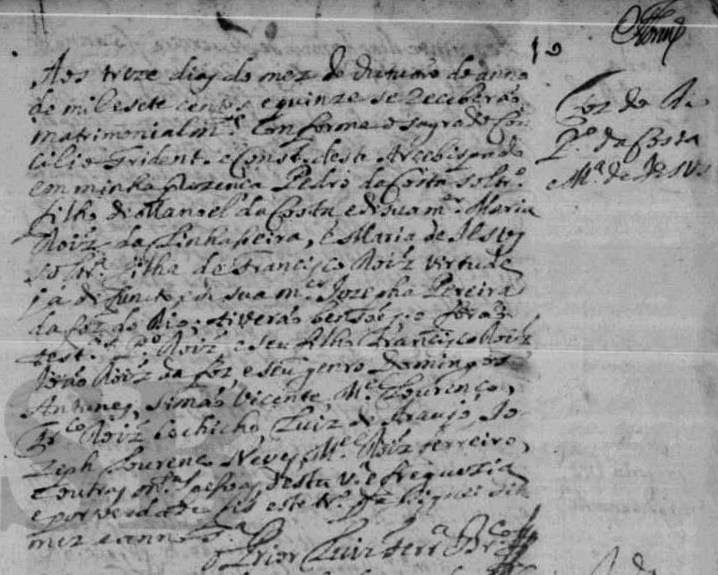 10
Aos treze dias do mez de Outubro do anno
de mil e sete centos e quinze se Receberão
matrimonialm.te Conforme o sagrado Con
cilio Trident. e Const. deste Arcebispado
em minha prezença Pedro da Costa soltr.o
filho de Manoel da Costa e de sua m.er Maria
Roiz da Linhaseira, e Maria de Jesus
soltr.a filha de Francisco Roiz virtude
já defuncto e de sua m.er Jozepha Pereira
da foz do Rio; tiverão bensoes; forão
test.as P.o Roiz e seu filho Francisco Roiz
João Roiz da foz, e seu genro Domingos
Antunes, Simão Vicente, M.el Lourenço,
Fr.co Roiz Cochicho Luiz de Araujo, Jo
zeph Lourenço Neves, M.el Roiz ferreiro,
e outras m.tas pesoas desta V.a e freguezia
e por verdade fis este tr.o q asignei dia
mez e anno
o Prior Luiz Ferr.a
Foz do R.o
P.o da Costa
e M.a de Jesus